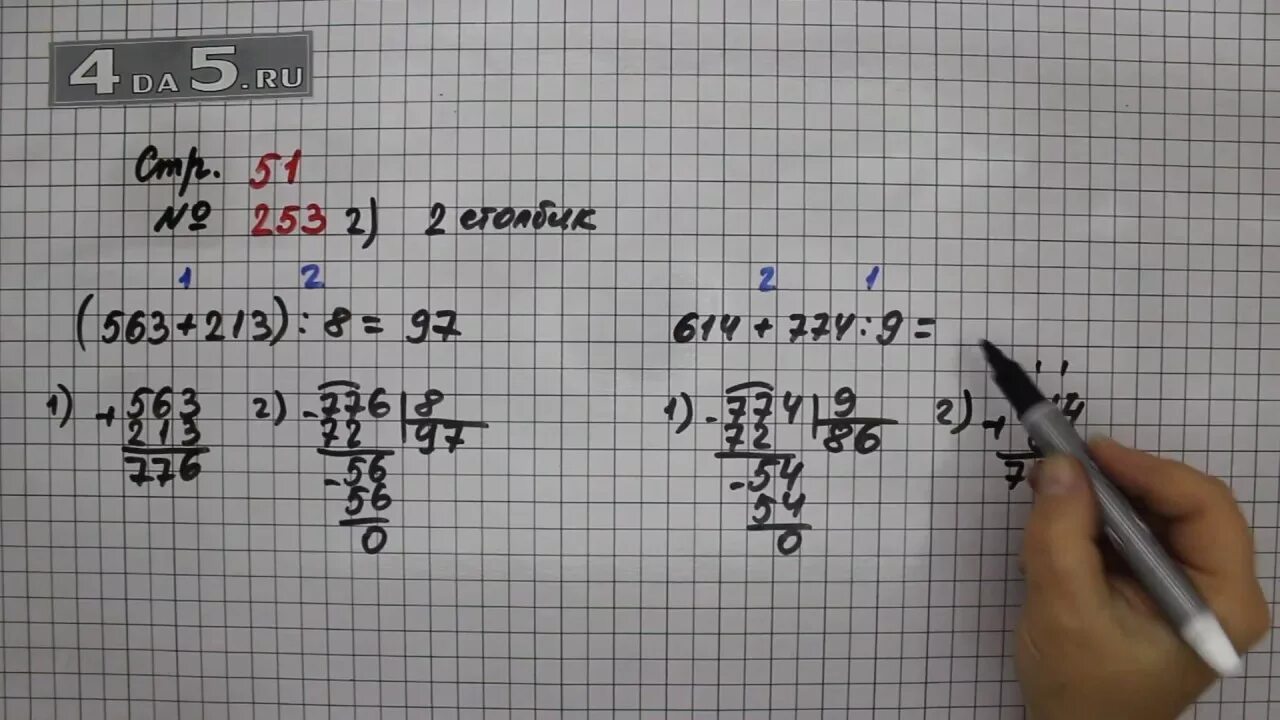 4 DA 5.RU
Стр. 51
№ 253 2) 2 столбик
1 2
(563+213) : 8 = 97
2 1
614 + 774 : 9 =
1) + 563
213
776
2) - 776 | 8
72 97
- 56
56
0
1) - 774 | 9
72 86
- 54
54
0
2) + 4
7